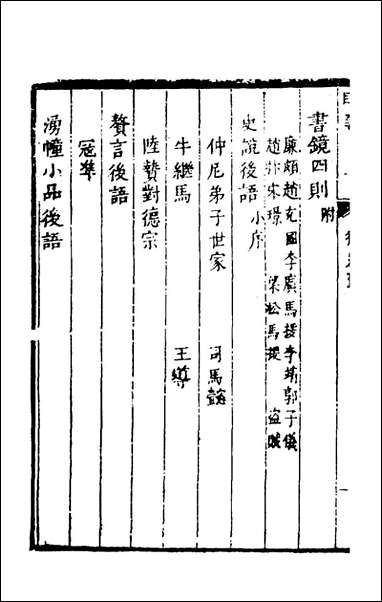 書鏡四則附
廉頗趙充國李廣馬援李靖郭子儀
趙抃宋璟 梁松馬援 盜賊
史說後語小序
仲尼弟子世家 司馬懿
牛繼馬 王導
陸贄對德宗
贅言後語
寇準
湧幢小品後語